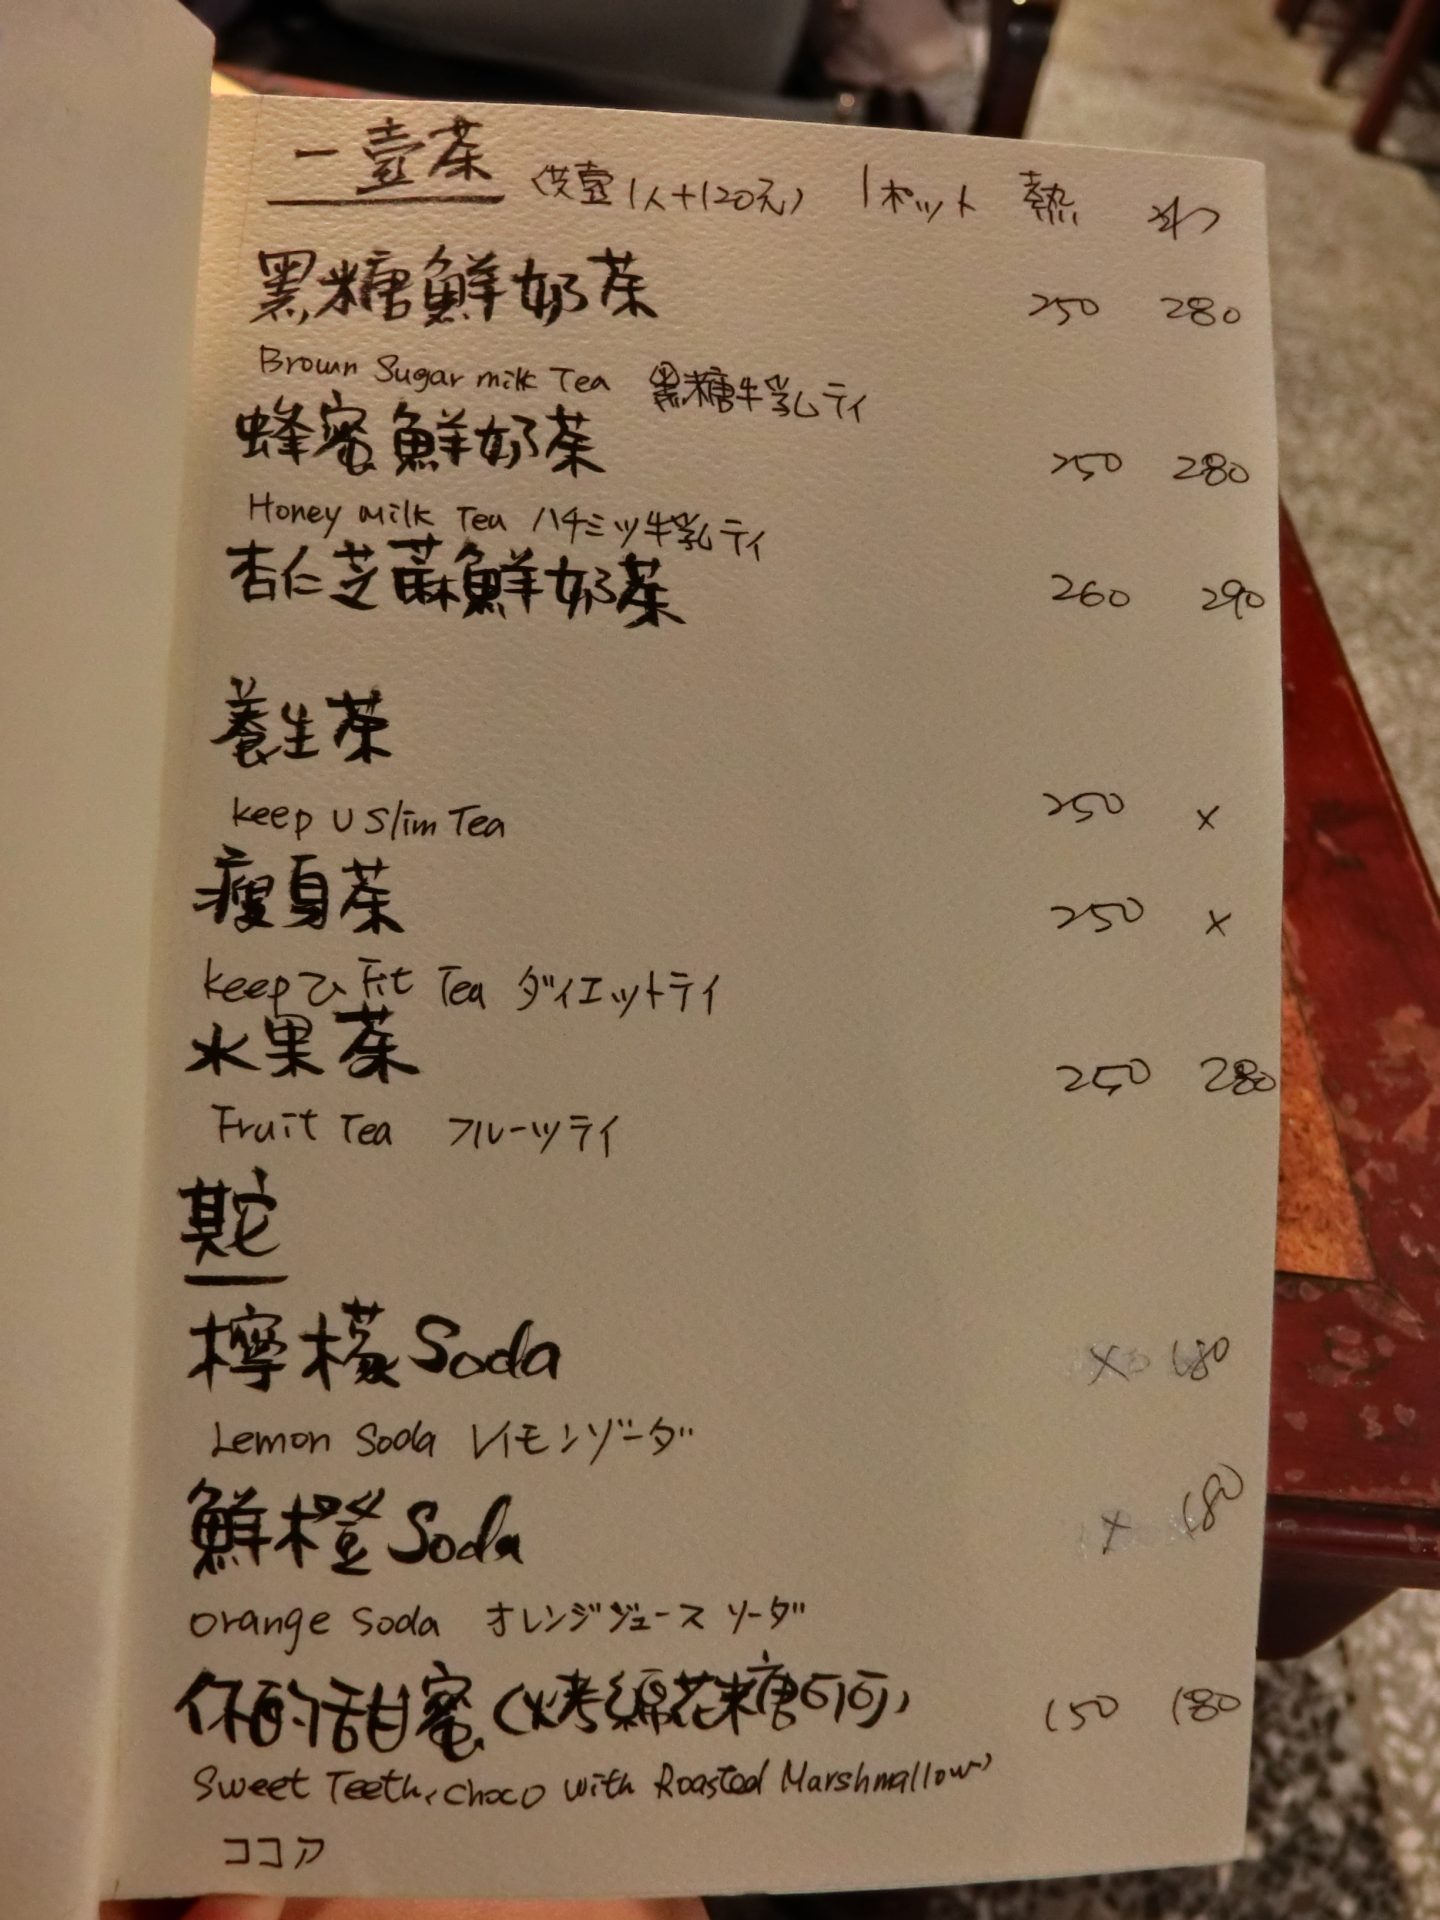 一壹茶 (共壹1人+120元) 1ポット 熱 冰
黑糖鮮奶茶 250 280
Brown Sugar milk Tea 黒糖牛乳ティ
蜂蜜鮮奶茶 250 280
Honey milk Tea ハチミツ牛乳ティ
杏仁芝蔴鮮奶茶 260 290
養生茶
keep U Slim Tea 250 x
瘦身茶 250 x
keep U Fit Tea ダイエットティ
水果茶 250 280
Fruit Tea フルーツティ
其它
檸檬Soda x 180
Lemon Soda レイモンゾーダ
鮮橙Soda x 180
orange soda オレンジジュース ソーダ
你的甜蜜(烤綿花糖可可) 150 180
Sweet Teeth, choco with Roasted Marshmallow)
ココア